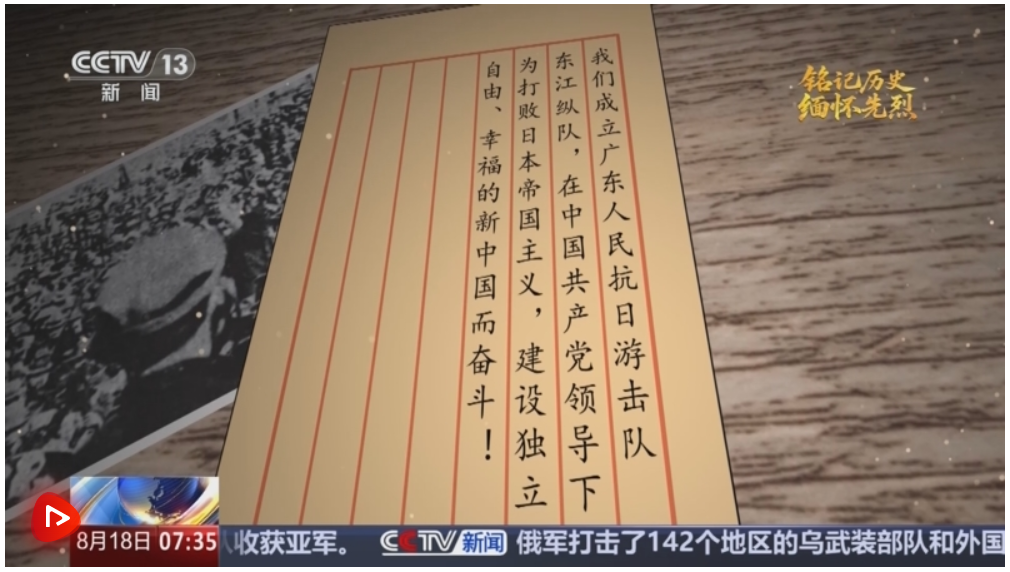 CCTV 13
新闻
铭记历史
缅怀先烈
我们成立广东人民抗日游击队
东江纵队，在中国共产党领导下
为打败日本帝国主义，建设独立
自由、幸福的新中国而奋斗！
8月18日 07:35
收获亚军。 CCTV新闻 俄军打击了142个地区的乌武装部队和外国